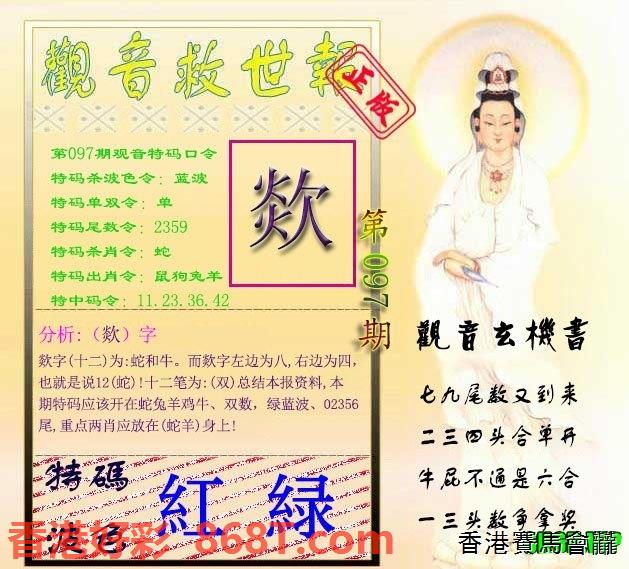 觀音救世報
正版
第097期观音特码口令
特码杀波色令：蓝波
特码单双令：单
特码尾数令：2359
特码杀肖令：蛇
特码出肖令：鼠狗兔羊
特中码令：11.23.36.42
欻
第097期
分析:（欻）字
欻字(十二)为:蛇和牛。而欻字左边为八,右边为四,
也就是说12(蛇)!十二笔为:(双)总结本报资料,本
期特码应该开在蛇兔羊鸡牛、双数，绿蓝波、02356
尾,重点两肖应放在(蛇羊)身上!
觀音玄機書
七九尾数又到来
二三四头合单开
牛屁不通是六合
一三头数争拿奖
特碼
波色
紅 绿
香港好彩 868T.com
香港賽馬會